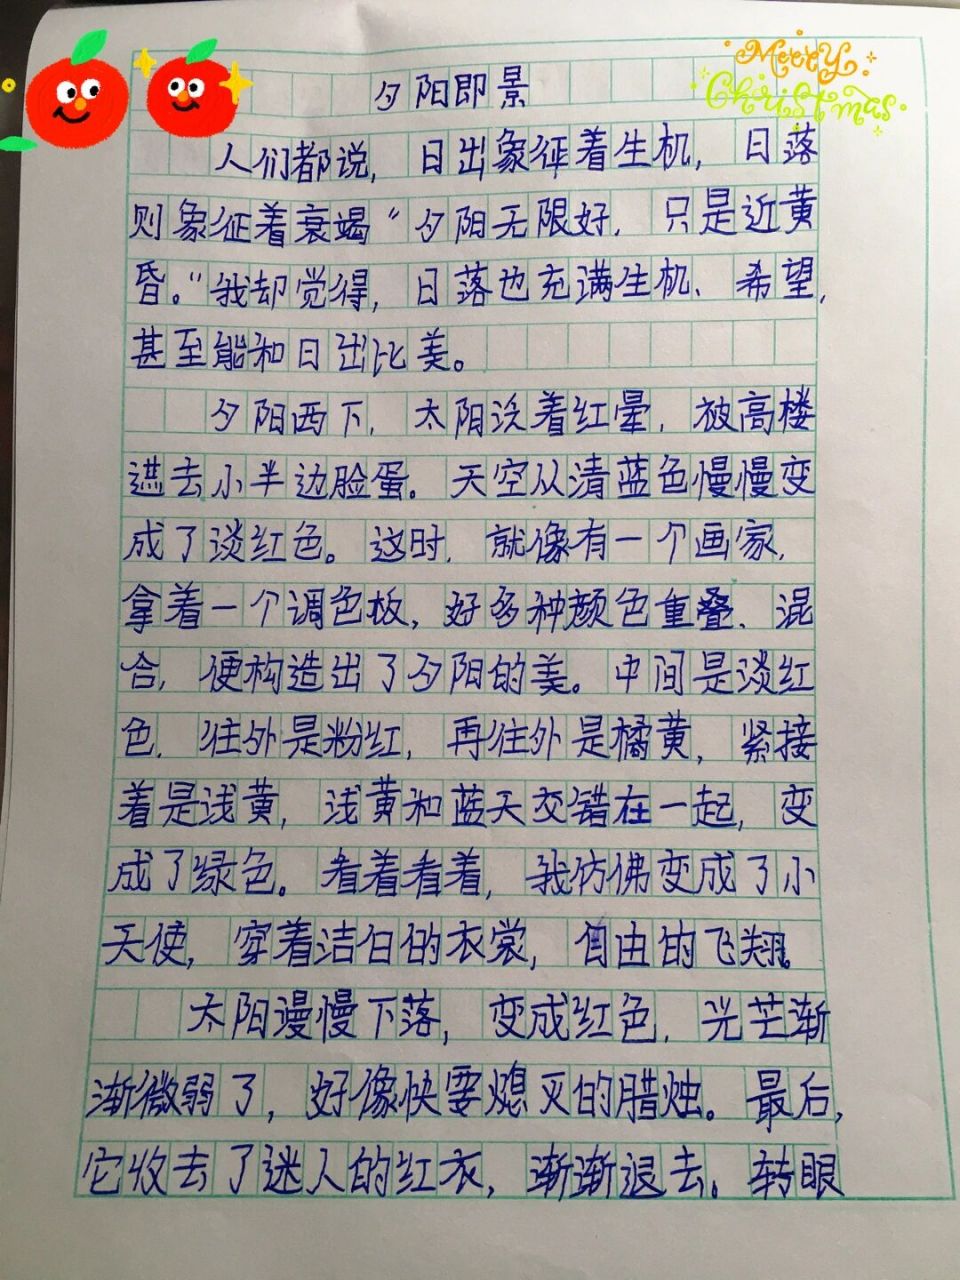 Merry
Christmas
夕阳即景
人们都说，日出象征着生机，日落
则象征着衰竭“夕阳无限好，只是近黄
昏。”我却觉得，日落也充满生机、希望，
甚至能和日出比美。
夕阳西下，太阳泛着红晕，被高楼
遮去小半边脸蛋。天空从清蓝色慢慢变
成了淡红色。这时，就像有一个画家，
拿着一个调色板，好多种颜色重叠、混
合，便构造出了夕阳的美。中间是淡红
色，往外是粉红，再往外是橘黄，紧接
着是浅黄，浅黄和蓝天交错在一起，变
成了绿色。看着看着，我仿佛变成了小
天使，穿着洁白的衣裳，自由的飞翔。
太阳漫慢下落，变成红色，光芒渐
渐微弱了，好像快要熄灭的腊烛。最后，
它收去了迷人的红衣，渐渐退去。转眼